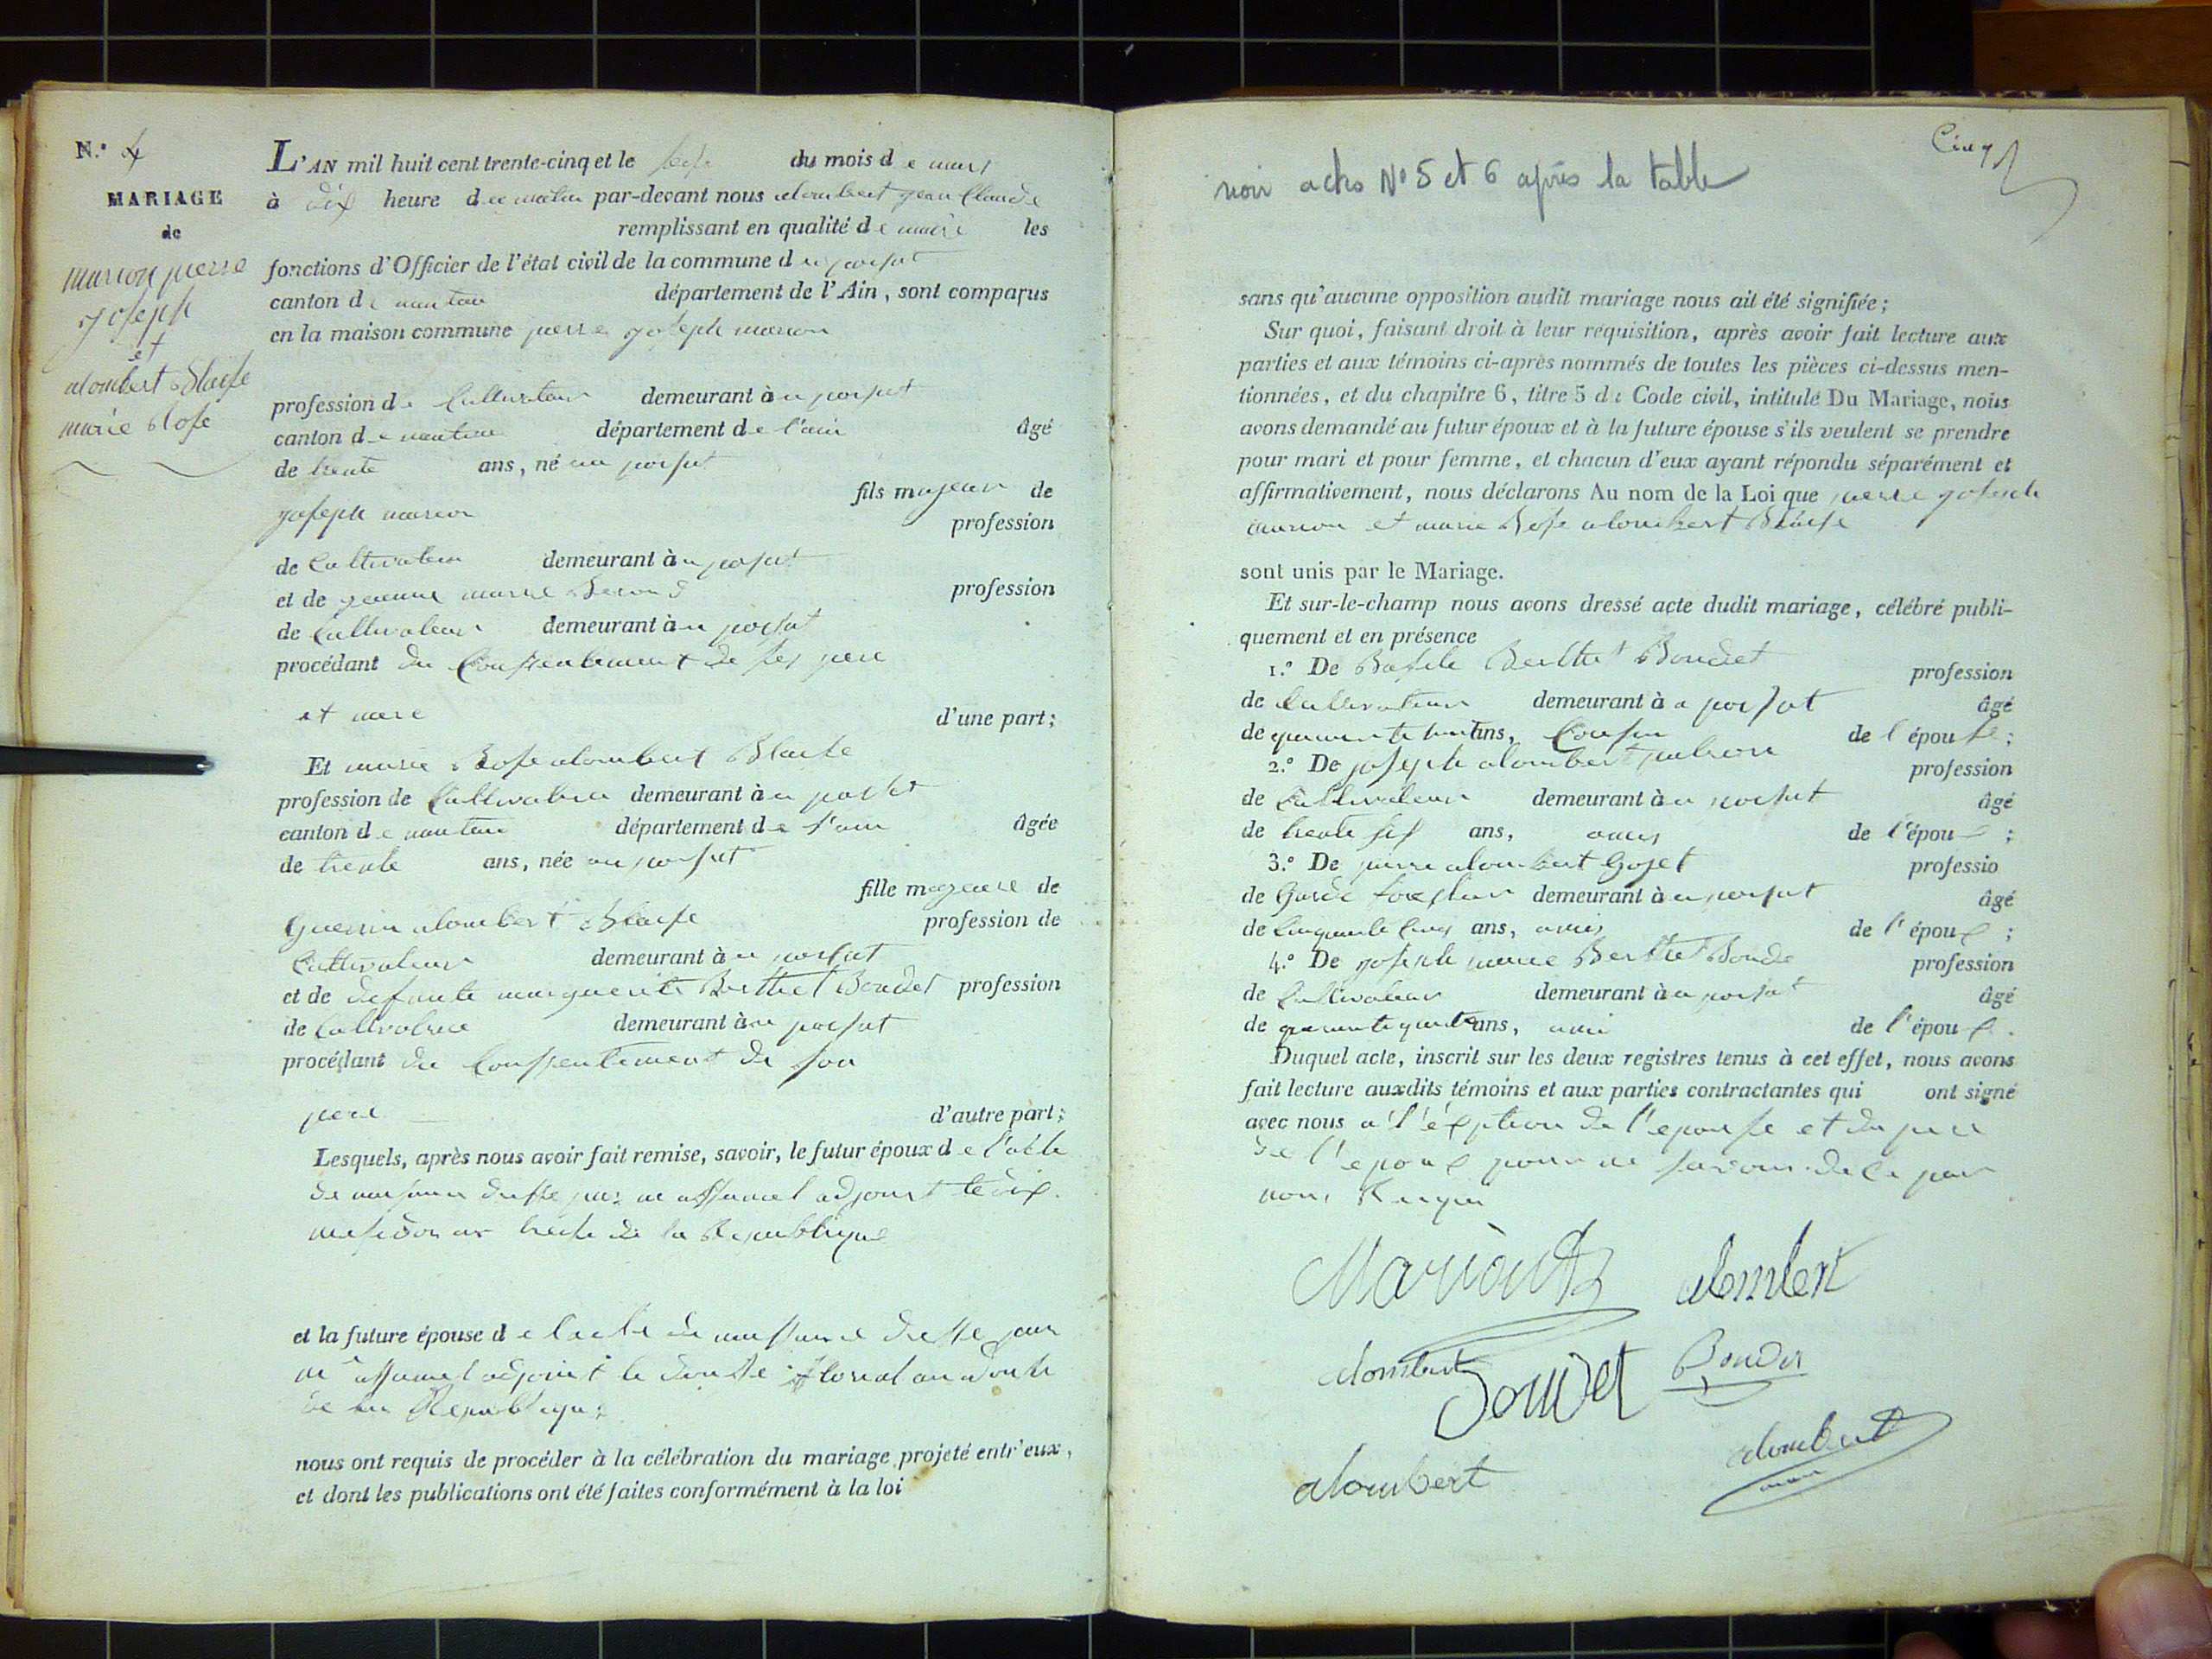 N.° 4
MARIAGE
de
marion pierre
joseph
et
alombert Blaise
marie Rose
L'AN mil huit cent trente-cinq et le seize du mois de mars
à dix heure du matin par-devant nous alombert jean Claude
remplissant en qualité de maire les
fonctions d'Officier de l'état civil de la commune du poisat
canton de nantua département de l'Ain, sont comparus
en la maison commune pierre joseph marion
profession de Cultivateur demeurant à u poisat
canton de nantua département de l'ain âgé
de trente ans, né au poisat
fils majeur de
joseph marion profession
de Cultivateur demeurant à u poisat
et de jeanne marie profession
de Cultivateur demeurant à u poisat
procédant du Consentement de ses pere
et mere d'une part;
Et marie Rose alombert Blaise
profession de Cultivatrice demeurant à u poisat
canton de nantua département de l'ain âgée
de trente ans, née au poisat
fille majeure de
Guerrin alombert Blaise profession de
Cultivateur demeurant à u poisat
et de defunte marguerite Berthet Bondet profession
de Cultivatrice demeurant à u poisat
procédant du Consentement de son
pere d'autre part;
Lesquels, après nous avoir fait remise, savoir, le futur époux de l'acte
de naissance dressé par m assumel adjoint le dix
messidor an treize de la Republique
et la future épouse de l'acte de naissance dressé par
m assumel adjoint le douze floreal an douze
de la Republique
nous ont requis de procéder à la célébration du mariage projeté entr'eux,
et dont les publications ont été faites conformément à la loi
Cinq
voir actes N° 5 et 6 après la table
sans qu'aucune opposition audit mariage nous ait été signifiée;
Sur quoi, faisant droit à leur réquisition, après avoir fait lecture aux
parties et aux témoins ci-après nommés de toutes les pièces ci-dessus men-
tionnées, et du chapitre 6, titre 5 du Code civil, intitulé Du Mariage, nous
avons demandé au futur époux et à la future épouse s'ils veulent se prendre
pour mari et pour femme, et chacun d'eux ayant répondu séparément et
affirmativement, nous déclarons Au nom de la Loi que pierre joseph
marion et marie Rose alombert Blaise
sont unis par le Mariage.
Et sur-le-champ nous avons dressé acte dudit mariage, célébré publi-
quement et en présence
1.° De Basile Berthet Bondet profession
de Cultivateur demeurant à u poisat âgé
de quarante huit ans, Cousin de l'épouse;
2.° De joseph alombert profession
de Cultivateur demeurant à u poisat âgé
de trente six ans, amis de l'épou ;
3.° De pierre alombert Goget professio
de Garde forestier demeurant à u poisat âgé
de Cinquante Cinq ans, amis de l'époux ;
4.° De joseph marie Berthet Bondet profession
de Cultivateur demeurant à u poisat âgé
de quarante quatre ans, ami de l'époux .
Duquel acte, inscrit sur les deux registres tenus à cet effet, nous avons
fait lecture auxdits témoins et aux parties contractantes qui ont signé
avec nous a l'éxption de l'epouse et du pere
de l'epoux pour ne savoir de ce par
nous Requis
Marion
alombert
alombert
Bondet
Bondet
alombert
alombert